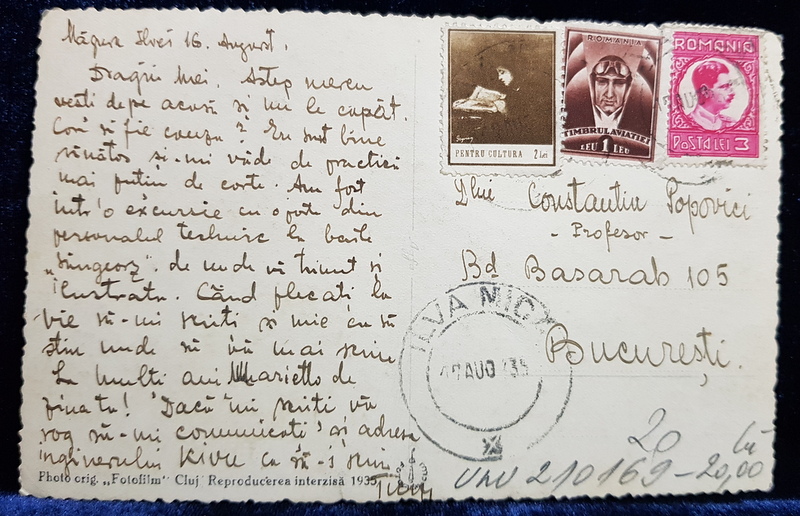 Măgura Ilvei 16. August.
Dragii mei. Aștep mereu
vești de pe acasă și nu le capăt.
Ce să fie cauza? Eu sunt bine
sănătos și-mi văd de practică
mai puțin de carte. Am fost
într'o excursie cu o parte din
personalul technic la băile
„Sângeorz". de unde vă trimit și
ilustrata. Când plecați la
vie să-mi scriți și mie ca să
știu unde să vă mai scriu
La mulți ani Marietto de
ziua ta! Dacă 'mi scriți vă
rog să-mi comunicați și adresa
inginerului KIVU ca să-i scriu
Photo orig. „Fotofilm" Cluj Reproducerea interzisă 1935
PENTRU CULTURA 2 Lei
ROMANIA
TIMBRUL AVIATIEI
LEU 1 LEU
ROMANIA
POSTA LEI 3
Dlui Constantin Popovici
- Profesor -
Bd Basarab 105
București.
ILVA MICĂ
17 AUG 935
20
210169-20,00